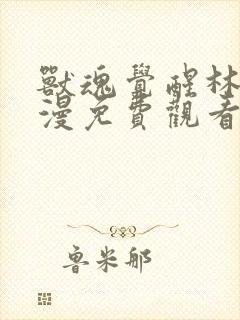 獸魂覺醒林
漫免費觀看
魯米那